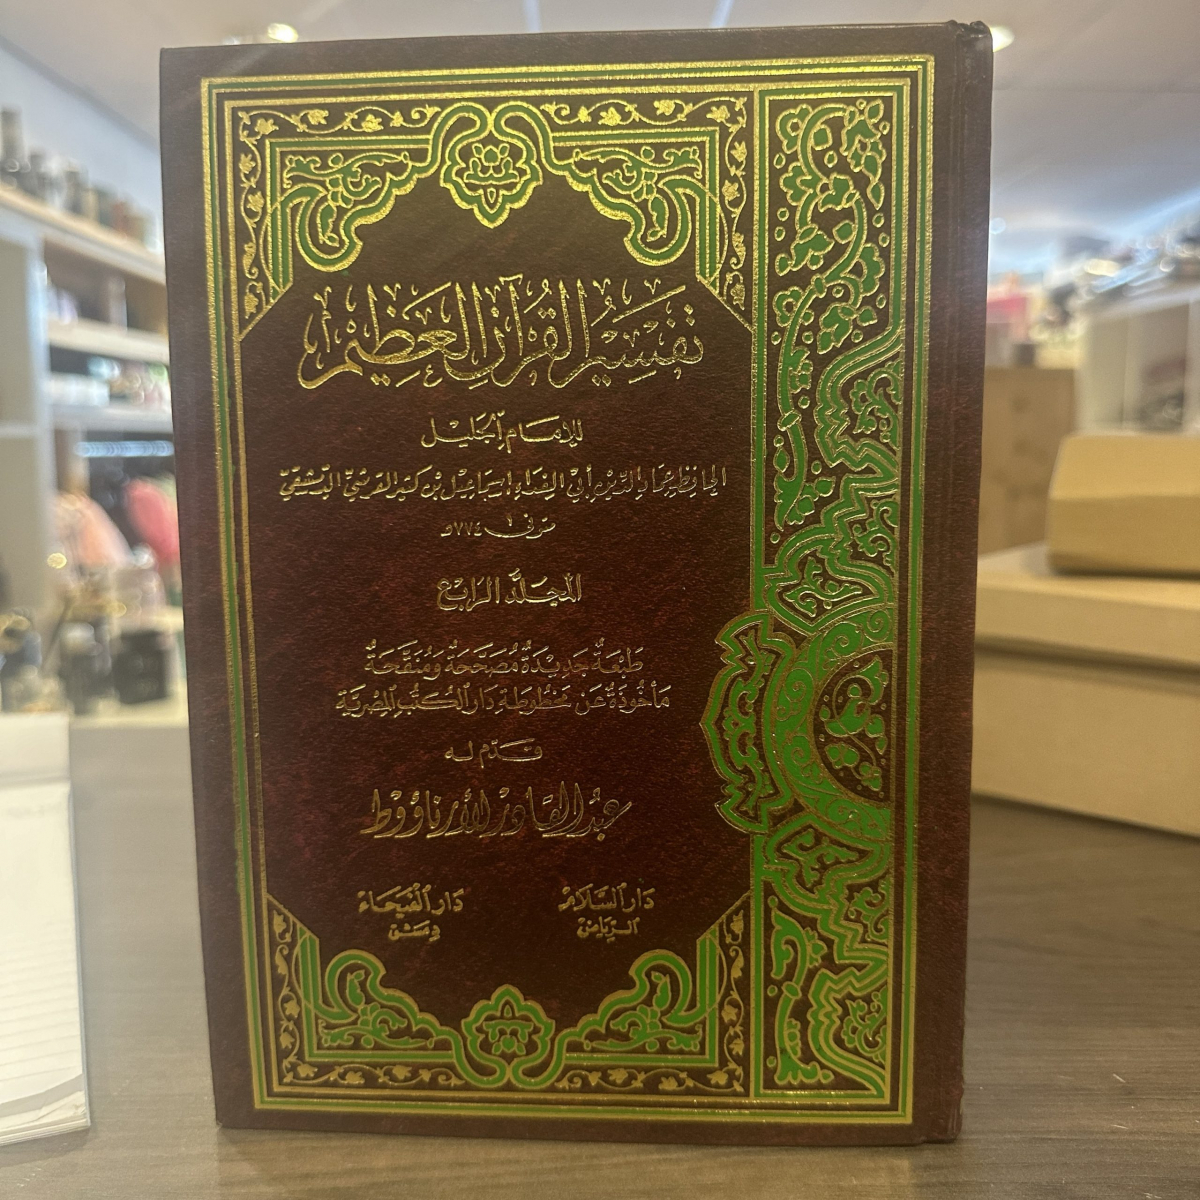 تَفسِيرُ القُرآنِ العَظِيمِ
للإمَام الجَليْل
الحافِظ عِمَاد الدِّين أبي الفِدَاء إسمَاعيْل بن كثير القرَشيّ الدّمَشقيّ
المجَلّد الرَابع
طَبْعَةٌ جَديْدَةٌ مُصَحَّحَةٌ وَمُنَقَّحَةٌ
مَأخُوذَةٌ عَن مَخطُوطَةِ دَار الكُتُبِ المِصْريَّةِ
قَدّم لَه
عَبْد القَادِر الأرنَاؤوط
دَارُ السَّلَام
الريَاض
دَار الفَيحَاء
دِمَشق